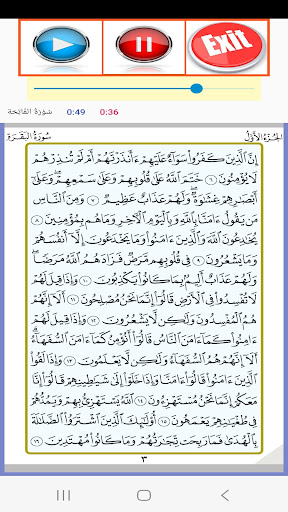 Exit
سُورَةُ الْفَاتِحَة 0:49 0:36
الجُزْءُ الأَوَّلُ سُورَةُ البَقَرَةِ
إِنَّ ٱلَّذِينَ كَفَرُوا۟ سَوَآءٌ عَلَيْهِمْ ءَأَنذَرْتَهُمْ أَمْ لَمْ تُنذِرْهُمْ
لَا يُؤْمِنُونَ ٦ خَتَمَ ٱللَّهُ عَلَىٰ قُلُوبِهِمْ وَعَلَىٰ سَمْعِهِمْ ۖ وَعَلَىٰٓ
أَبْصَٰرِهِمْ غِشَٰوَةٌ ۖ وَلَهُمْ عَذَابٌ عَظِيمٌ ٧ وَمِنَ ٱلنَّاسِ
مَن يَقُولُ ءَامَنَّا بِٱللَّهِ وَبِٱلْيَوْمِ ٱلْءَاخِرِ وَمَا هُم بِمُؤْمِنِينَ ٨
يُخَٰدِعُونَ ٱللَّهَ وَٱلَّذِينَ ءَامَنُوا۟ وَمَا يَخْدَعُونَ إِلَّآ أَنفُسَهُمْ
وَمَا يَشْعُرُونَ ٩ فِى قُلُوبِهِم مَّرَضٌ فَزَادَهُمُ ٱللَّهُ مَرَضًا ۖ
وَلَهُمْ عَذَابٌ أَلِيمٌۢ بِمَا كَانُوا۟ يَكْذِبُونَ ١٠ وَإِذَا قِيلَ لَهُمْ
لَا تُفْسِدُوا۟ فِى ٱلْأَرْضِ قَالُوٓا۟ إِنَّمَا نَحْنُ مُصْلِحُونَ ١١ أَلَآ إِنَّهُمْ
هُمُ ٱلْمُفْسِدُونَ وَلَٰكِن لَّا يَشْعُرُونَ ١٢ وَإِذَا قِيلَ لَهُمْ
ءَامِنُوا۟ كَمَآ ءَامَنَ ٱلنَّاسُ قَالُوٓا۟ أَنُؤْمِنُ كَمَآ ءَامَنَ ٱلسُّفَهَآءُ ۗ
أَلَآ إِنَّهُمْ هُمُ ٱلسُّفَهَآءُ وَلَٰكِن لَّا يَعْلَمُونَ ١٣ وَإِذَا لَقُوا۟
ٱلَّذِينَ ءَامَنُوا۟ قَالُوٓا۟ ءَامَنَّا وَإِذَا خَلَوْا۟ إِلَىٰ شَيَٰطِينِهِمْ قَالُوٓا۟ إِنَّا
مَعَكُمْ إِنَّمَا نَحْنُ مُسْتَهْزِءُونَ ١٤ ٱللَّهُ يَسْتَهْزِئُ بِهِمْ وَيَمُدُّهُمْ
فِى طُغْيَٰنِهِمْ يَعْمَهُونَ ١٥ أُو۟لَٰٓئِكَ ٱلَّذِينَ ٱشْتَرَوُا۟ ٱلضَّلَٰلَةَ
بِٱلْهُدَىٰ فَمَا رَبِحَت تِّجَٰرَتُهُمْ وَمَا كَانُوا۟ مُهْتَدِينَ ١٦
٣